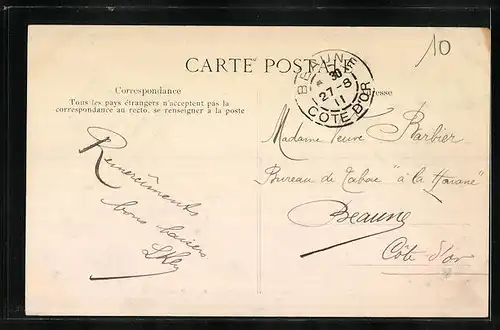 10
CARTE POSTALE
BEAUNE
* 30
27-8
11
CÔTE D'OR
Correspondance
Tous les pays étrangers n'acceptent pas la
correspondance au recto, se renseigner à la poste
Remerciments
bons baisers
Adresse
Madame Veuve Barbier
Bureau de Tabac "à la Havane"
Beaune
Côte d'or